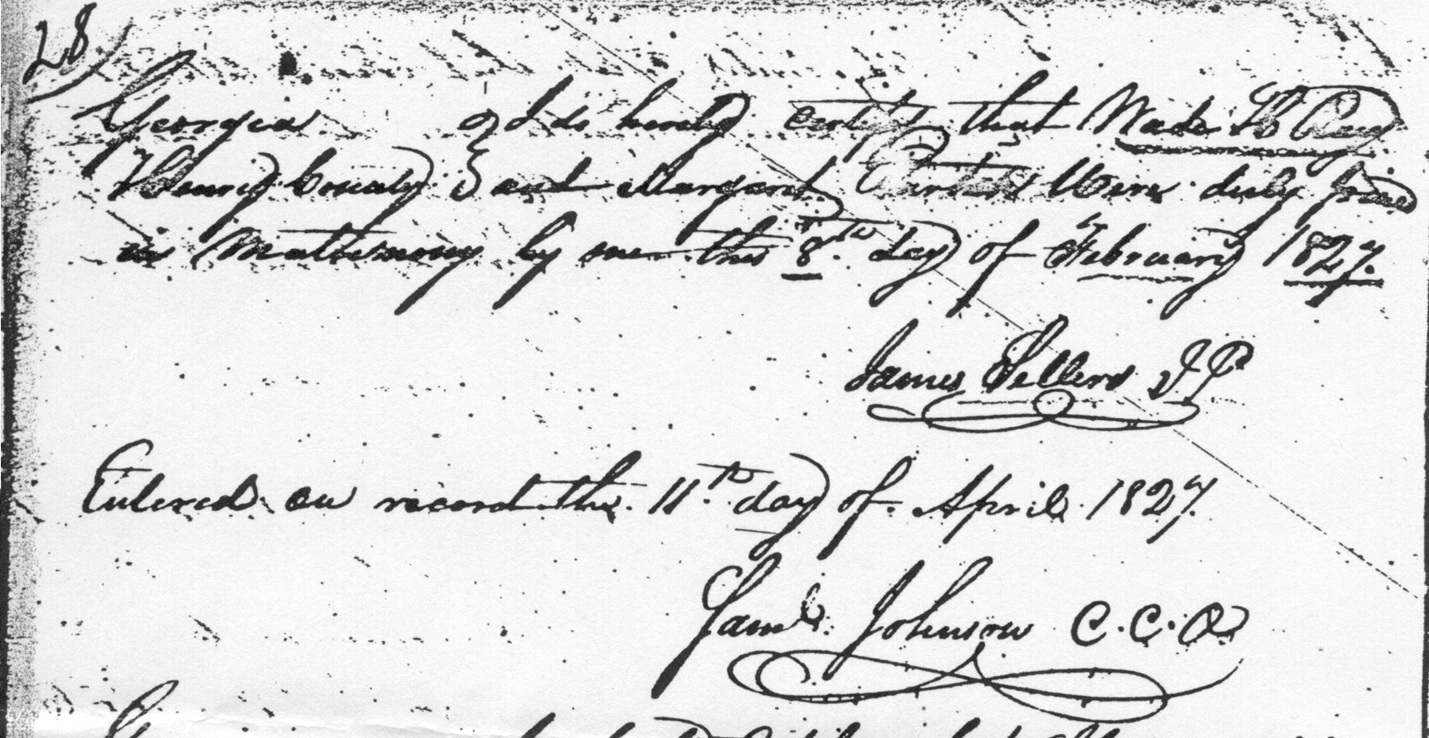 28
Georgia } I do hereby certify that Wade H
Henry County } and Margaret were duly joined
in Mattrimony by me this 8th day of February 1827.
James Sellers JP
Entered on record the 11th day of April 1827.
Saml. Johnson C.C.O